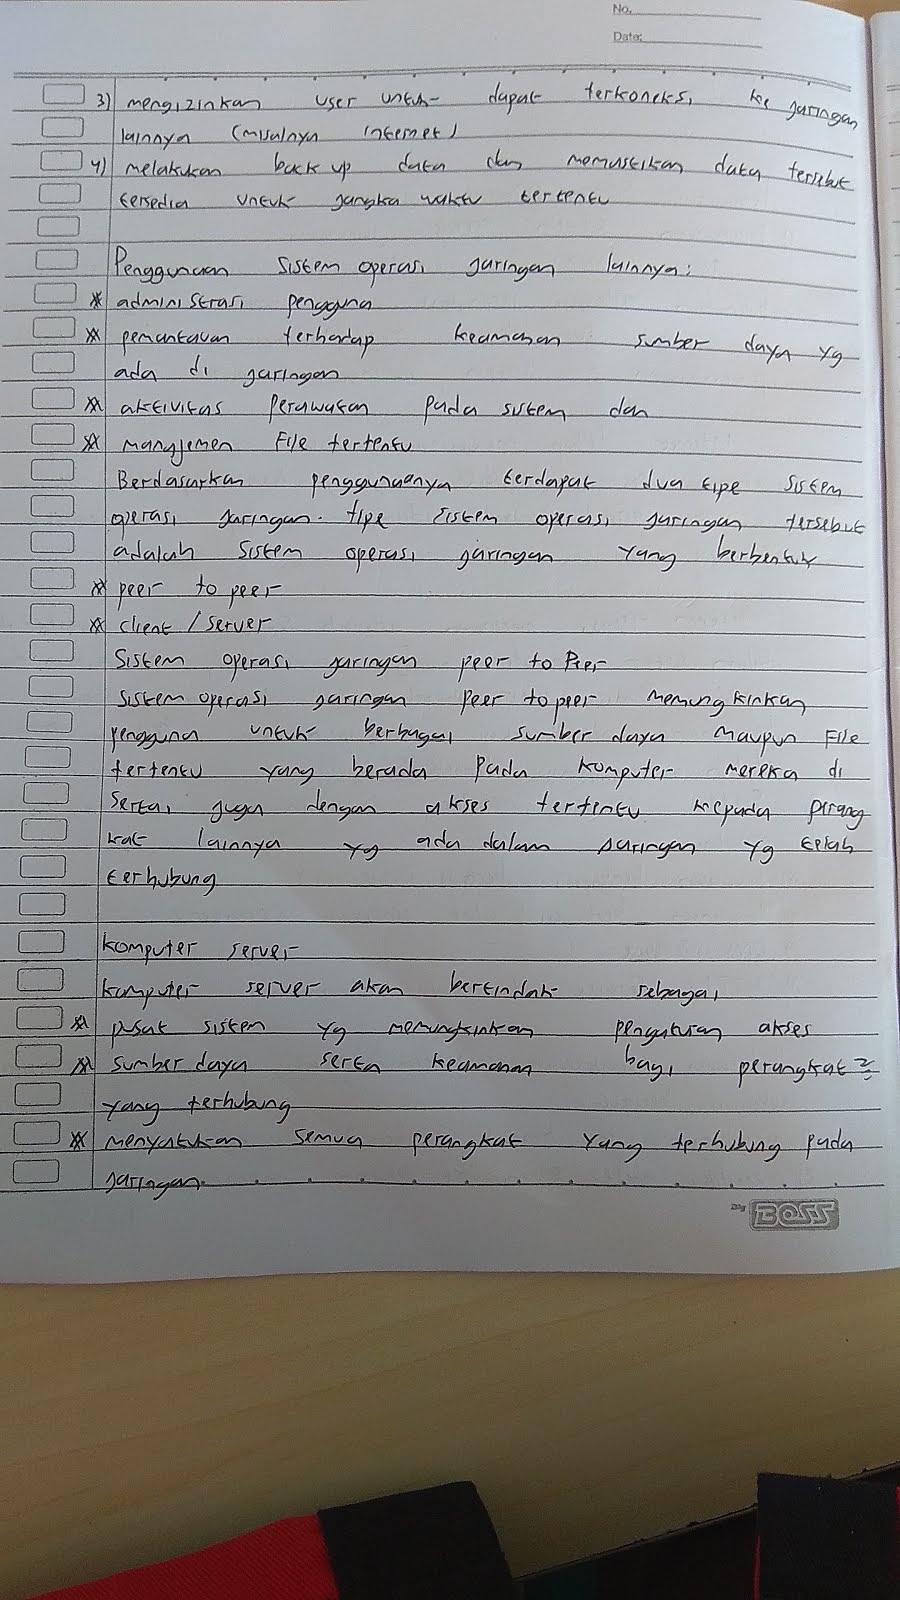 No.
Date:
3) mengizinkan user untuk dapat terkoneksi ke jaringan
lainnya (misalnya internet)
4) melakukan back up data dan memastikan data tersebut
tersedia untuk jangka waktu tertentu
Penggunaan sistem operasi jaringan lainnya:
* administrasi pengguna
* pemantauan terhadap keamanan sumber daya yg
ada di jaringan
* aktivitas perawatan pada sistem dan
* manajemen File tertentu
Berdasarkan penggunaanya terdapat dua tipe sistem
operasi jaringan. tipe sistem operasi jaringan tersebut
adalah sistem operasi jaringan yang berbentuk
* peer to peer
* client / server
Sistem operasi jaringan peer to Peer
Sistem operasi jaringan peer to peer memungkinkan
pengguna untuk berbagai sumber daya maupun File
tertentu yang berada pada komputer mereka di
sertai juga dengan akses tertentu kepada perang
kat lainnya yg ada dalam jaringan yg telah
terhubung
komputer server
komputer server akan bertindak sebagai
* pusat sistem yg memungkinkan pengaturan akses
* sumber daya serta keamanan bagi perangkat2
yang terhubung
* menyatukan semua perangkat yang terhubung pada
jaringan.
Big BOSS